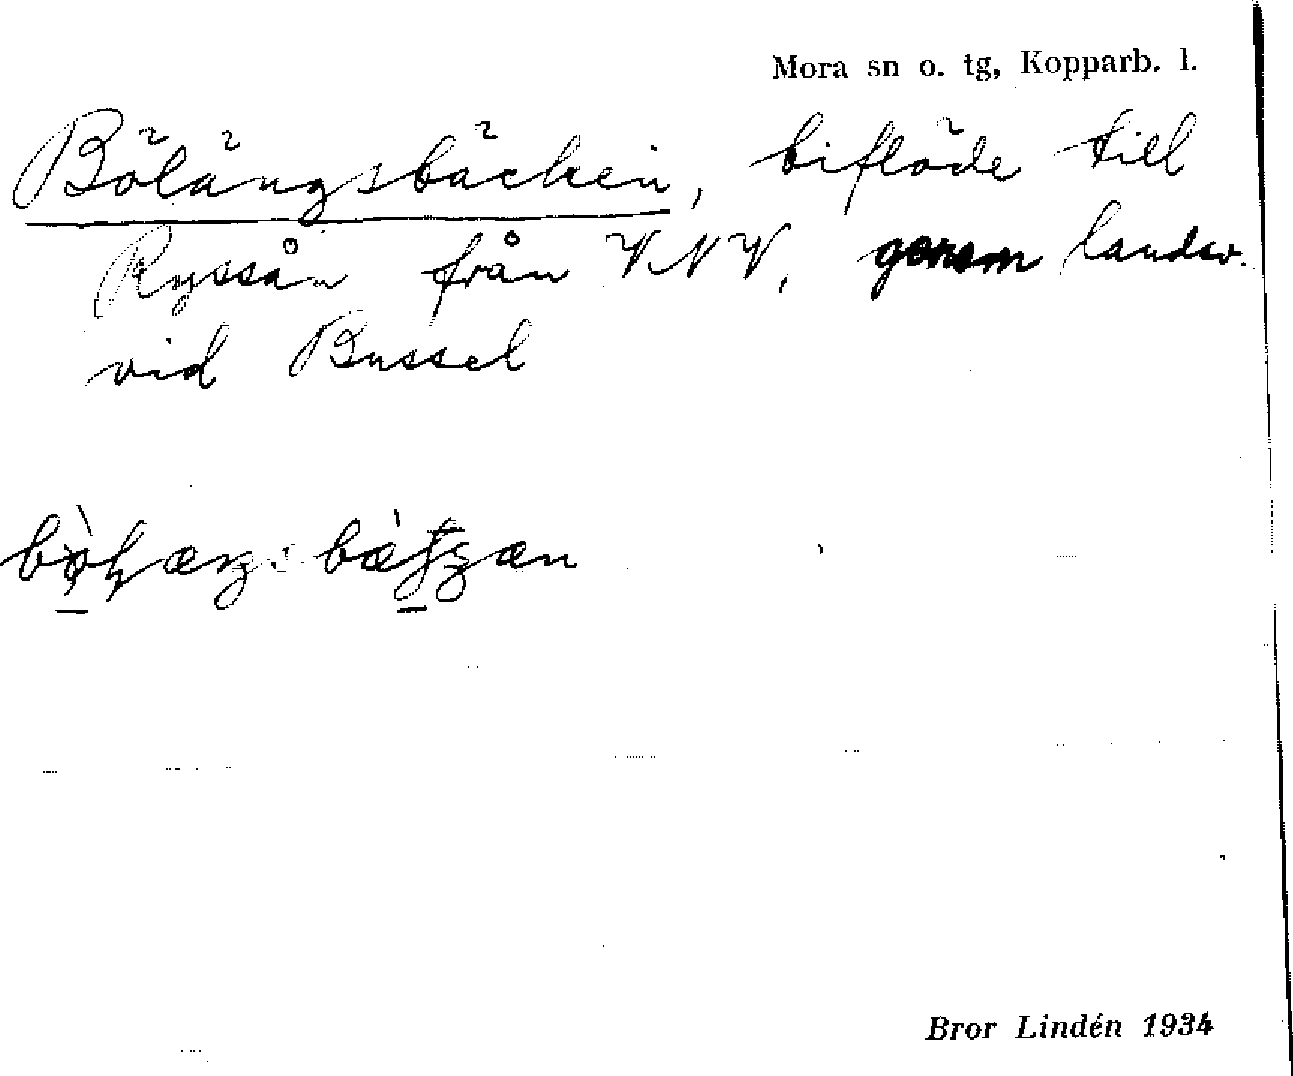 Mora sn o. tg, Kopparb. l.
Bölängsbäcken, biflöde till
Ryssån från VNV, genom landsv.
vid Bussel
Bror Lindén 1934